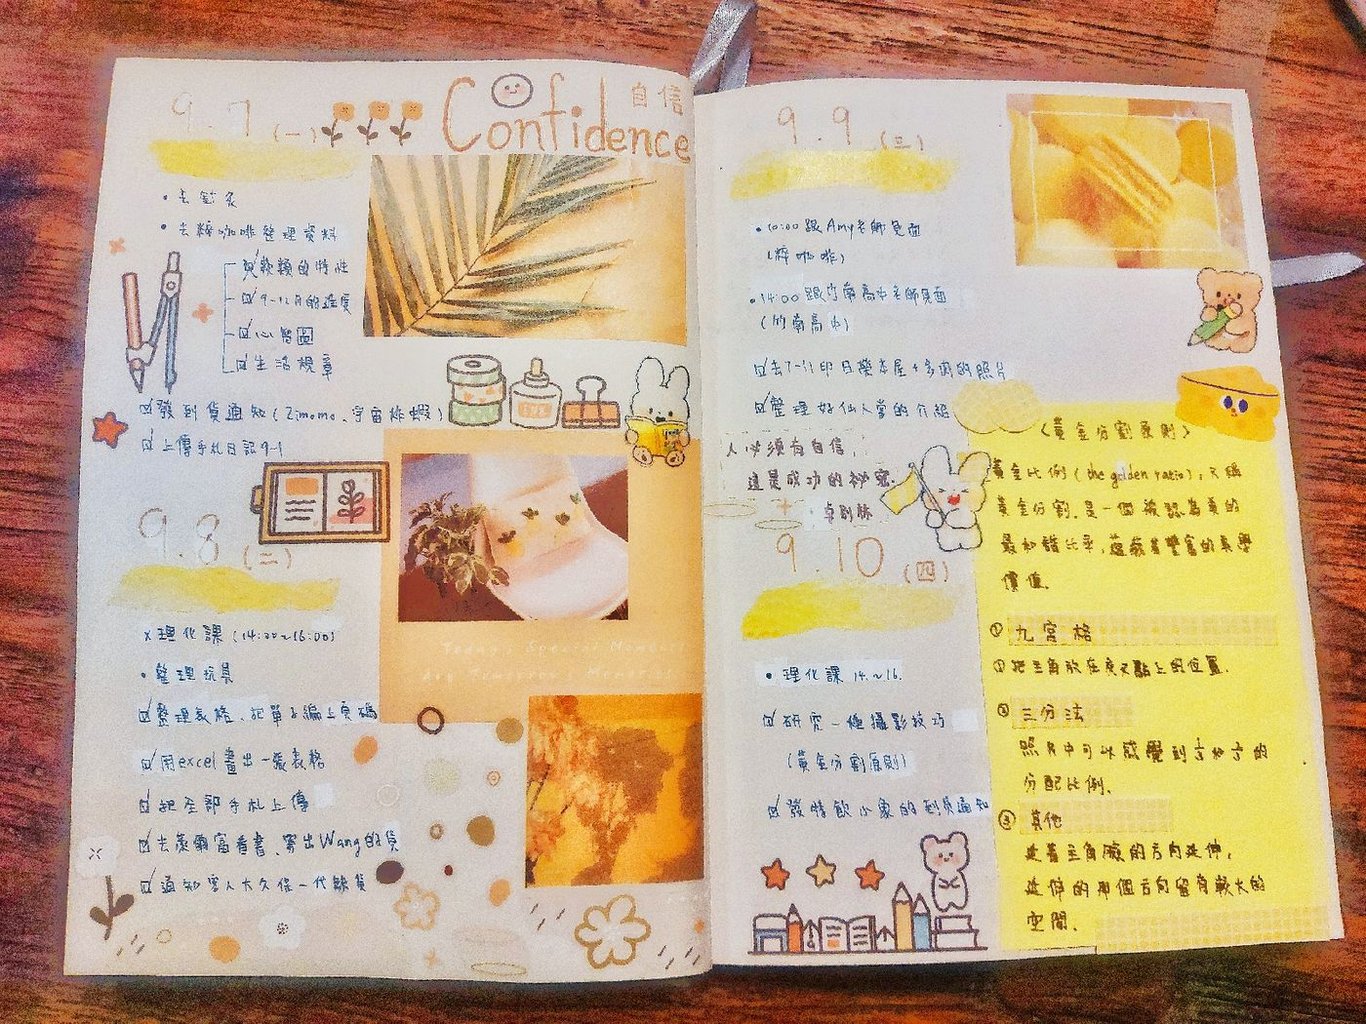 9.7 (一)
Confidence 自信
• 去針灸
• 去粹咖啡整理資料
的特性
9-12月的進度
心智圖
生活規章
發到貨通知(Zimomo、宇宙炸蝦)
上傳手札日記9-1
9.8 (二)
x 理化課 (14:00~16:00)
• 整理玩具
整理表格、把單子編上頁碼
用excel畫出一張表格
把全部手札上傳
書、寄出Wang的貨
通知雲人大久保一代餘貨
Today's Special Moments
Are Tomorrow's Memories.
9.9 (三)
• 10:00跟Amy老師見面
(粹咖啡)
• 14:00跟竹南高中老師見面
(竹南高中)
去7-11印日藥本屋+多肉的照片
整理好仙人掌的介紹
人必須有自信,
這是成功的祕密.
卓別林
9.10 (四)
• 理化課 14.~16.
研究一種攝影技巧
(黃金分割原則)
發時飲小象的到貨通知
〈黃金分割原則〉
黃金比例(the golden ratio),又稱
黃金分割.是一個被認為美的
最和諧比率,蘊藏著豐富的美學
價值.
① 九宮格
①把主角放在交叉點上的位置.
② 三分法
照片中可以感覺到⅓和⅔的
分配比例.
③ 其他
延著主角臉的方向延伸,
延伸的那個方向留有較大的
空間.